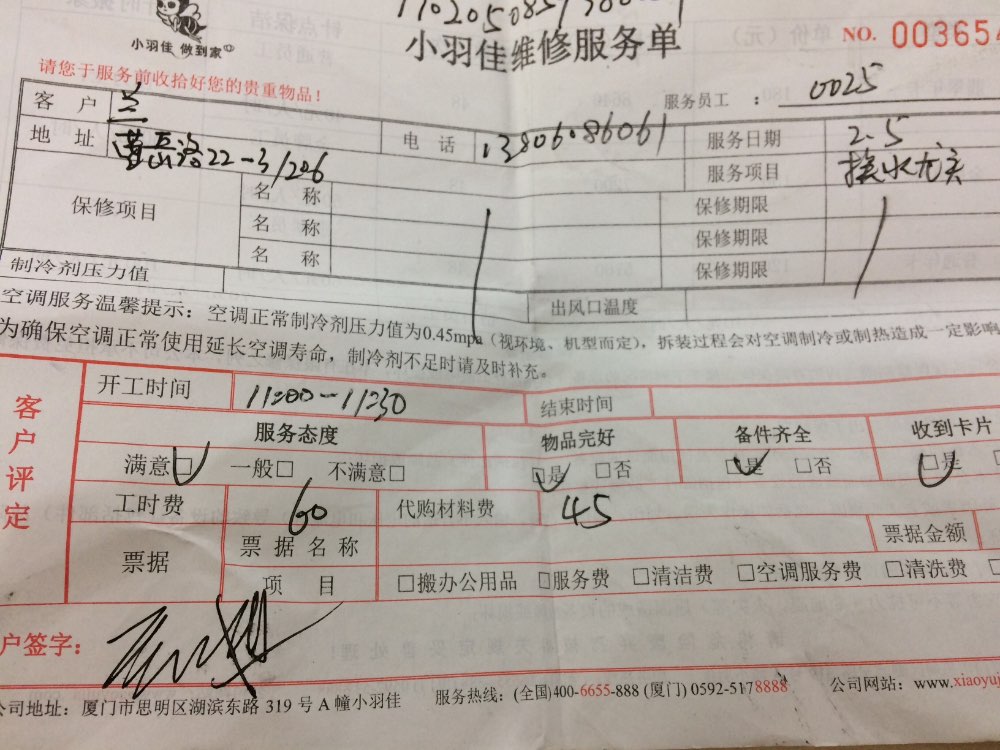 小羽佳 做到家
小羽佳维修服务单
NO. 003654
请您于服务前收拾好您的贵重物品！
服务员工 ： 0025
客 户 兰
地 址 莲岳路22-3/206 电 话 13806086061 服务日期 2.5
服务项目 换水龙头
保修项目 名 称 保修期限
名 称 保修期限
名 称 保修期限
制冷剂压力值 出风口温度
空调服务温馨提示：空调正常制冷剂压力值为0.45mpa（视环境、机型而定），拆装过程会对空调制冷或制热造成一定影响
为确保空调正常使用延长空调寿命，制冷剂不足时请及时补充。
客户评定
开工时间 11:00-11:30 结束时间
服务态度 物品完好 备件齐全 收到卡片
满意□ 一般□ 不满意□ □是 □否 □是 □否 □是
工时费 60 代购材料费 45
票据 票据名称 票据金额
项 目 □搬办公用品 □服务费 □清洁费 □空调服务费 □清洗费
户签字：
公司地址：厦门市思明区湖滨东路 319 号 A 幢小羽佳 服务热线：(全国)400-6655-888 (厦门) 0592-5178888 公司网站：www.xiaoyuj